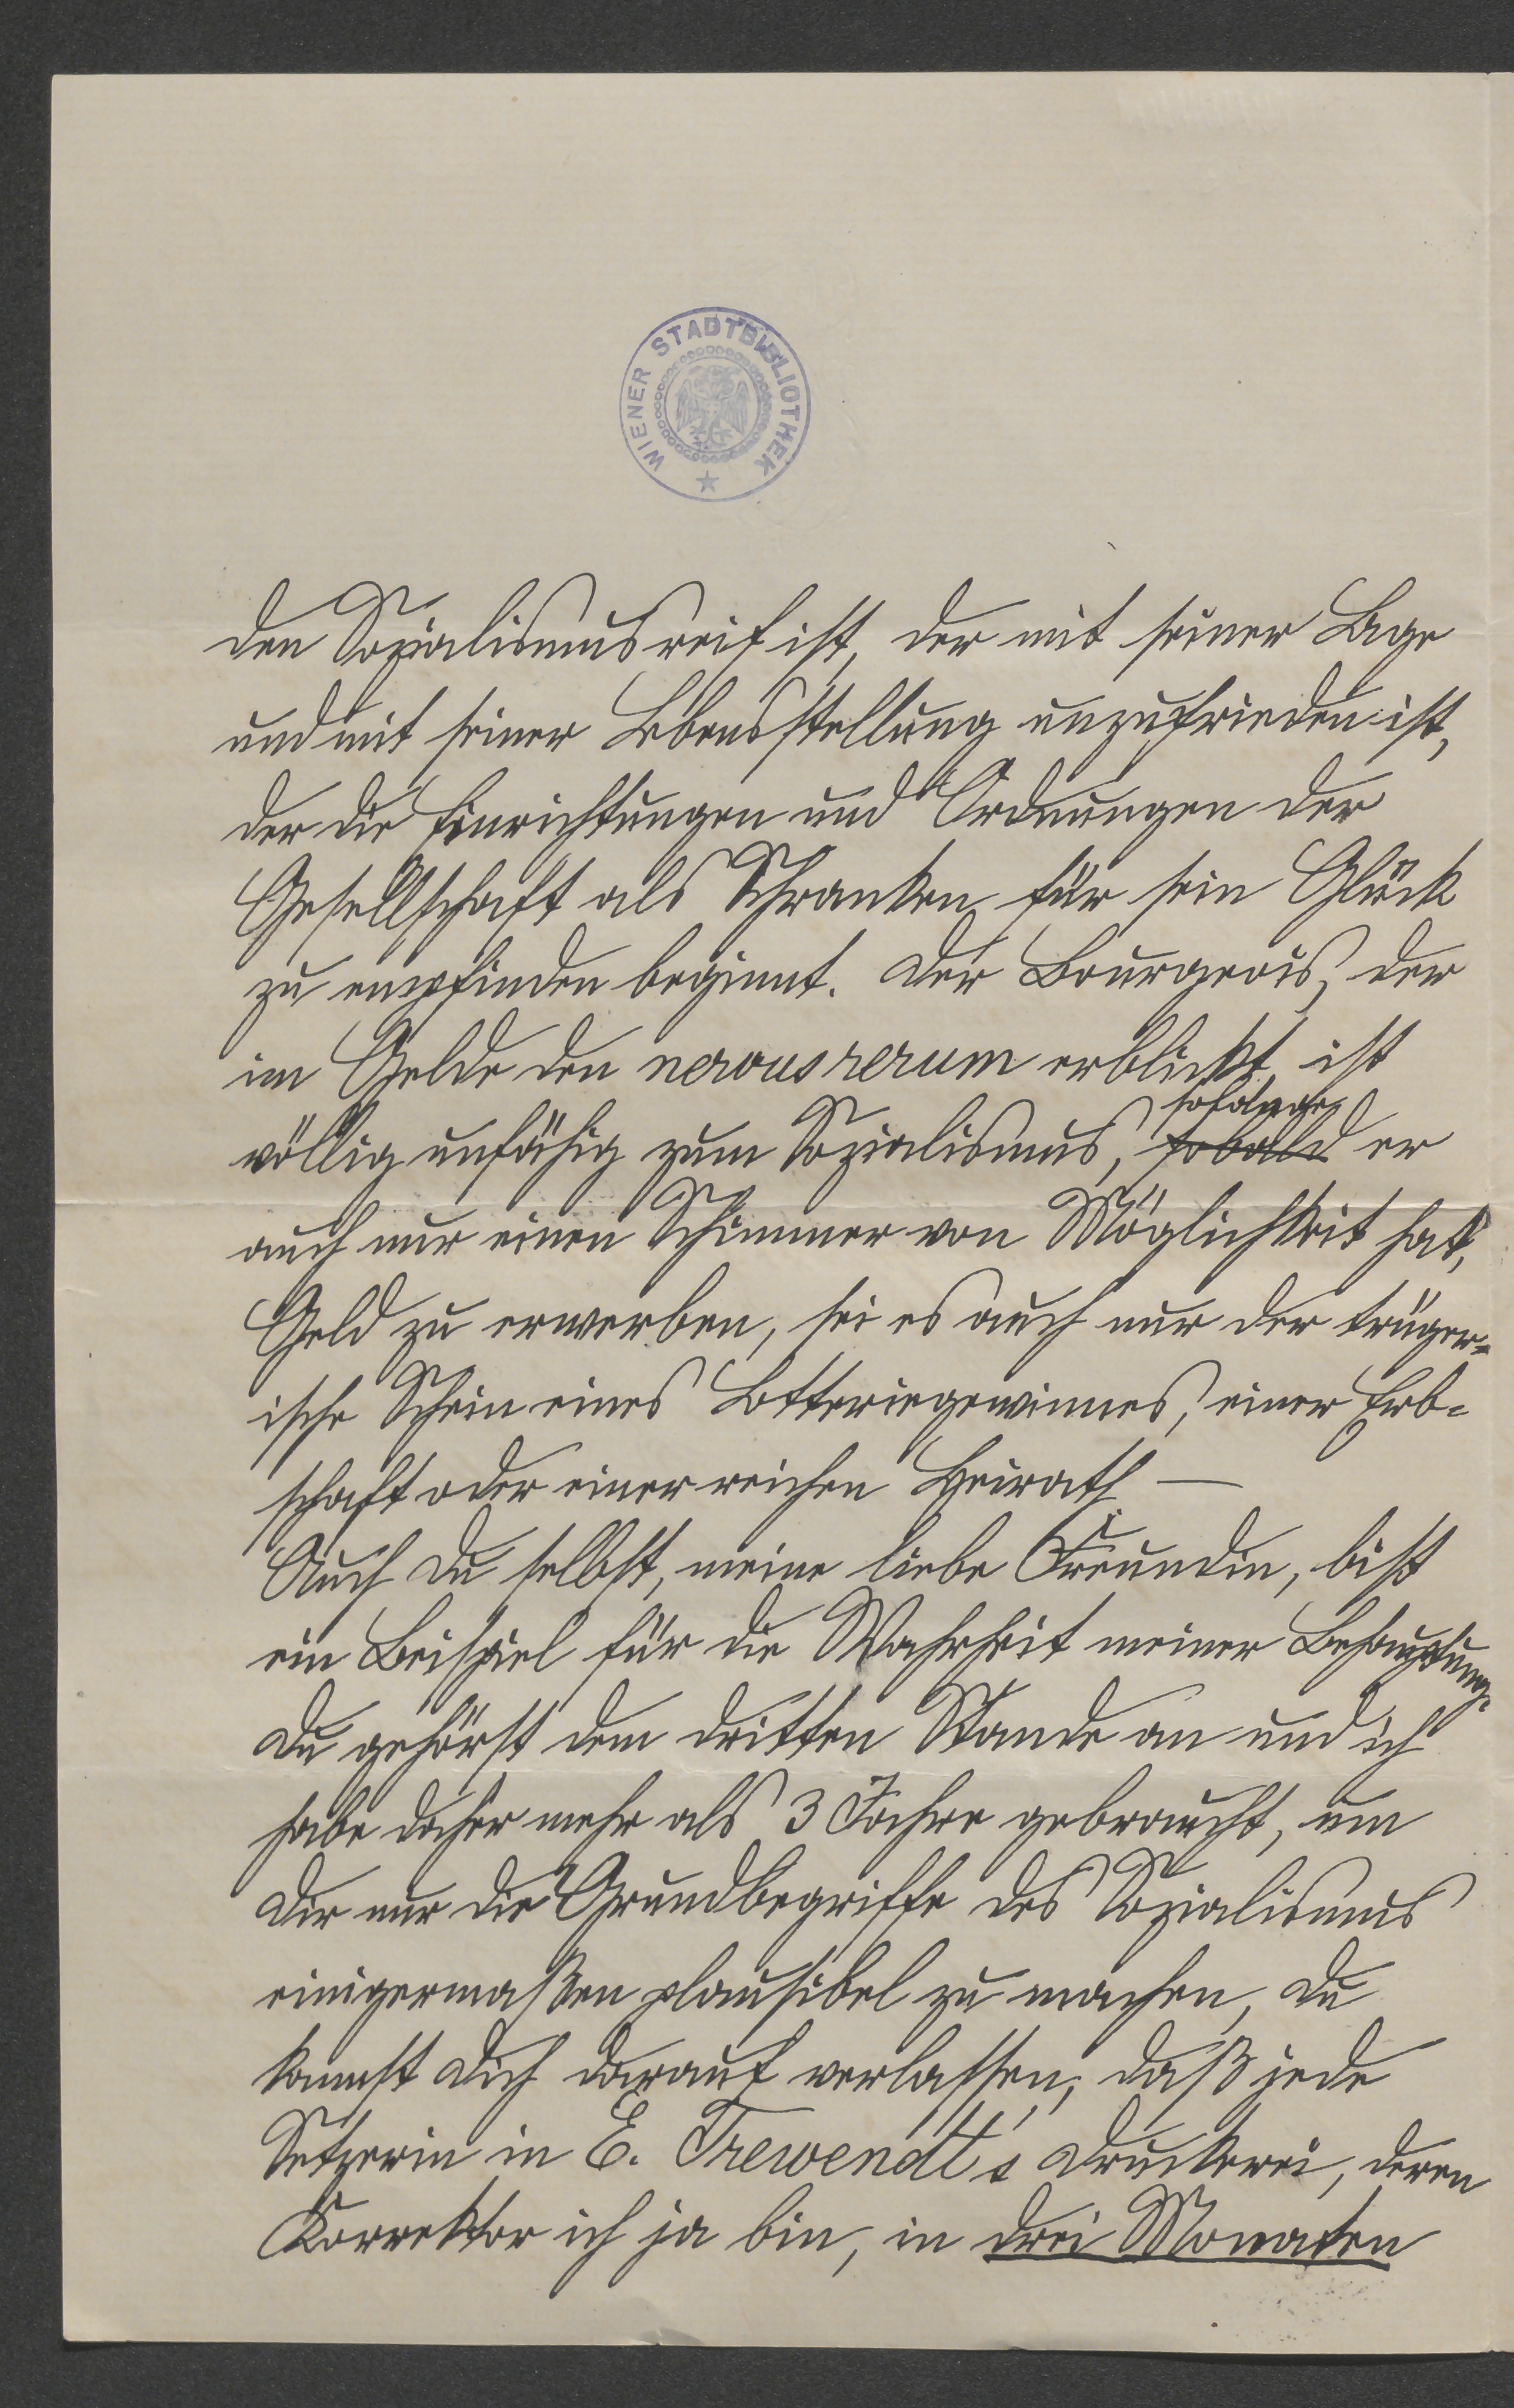 WIENER STADTBIBLIOTHEK
den Sozialismus reif ist, der mit seiner Lage
und mit seiner Lebensstellung unzufrieden ist,
der die Einrichtungen und Ordnungen der
Gesellschaft als Schranken für sein Glück
zu empfinden beginnt. Der Bourgeois, der
im Gelde den nervus rerum erblickt, ist
solange
völlig unfähig zum Sozialismus, sobald er
auch nur einen Schimmer von Möglichkeit hat,
Geld zu erwerben, sei es auch nur der trüger-
ische Schein eines Lotteriegewinnes, einer Erb-
schaft oder einer reichen Heirath —
Auch Du selbst, meine liebe Freundin, bist
ein Beispiel für die Wahrheit meiner Behauptung.
Du gehörst dem dritten Stande an und ich
habe daher mehr als 3 Jahre gebraucht, um
Dir nur die Grundbegriffe des Sozialismus
einigermaßen plausibel zu machen, Du
kannst Dich darauf verlassen, daß jede
Setzerin in E. Trewendt's Druckerei, deren
Korrektor ich ja bin, in drei Monaten